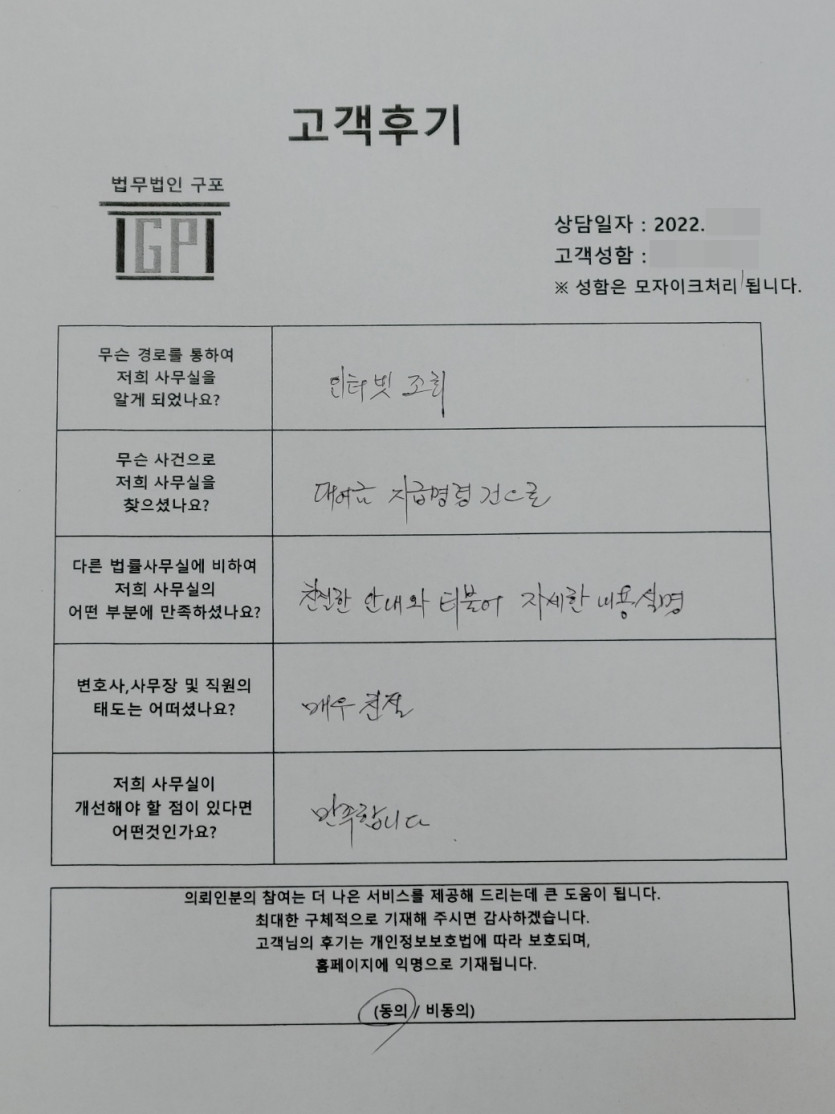 고객후기
법무법인 구포
GP
상담일자 : 2022.
고객성함 :
※ 성함은 모자이크처리 됩니다.
무슨 경로를 통하여
저희 사무실을
알게 되었나요?
인터넷 조회
무슨 사건으로
저희 사무실을
찾으셨나요?
대여금 지급명령 건으로
다른 법률사무실에 비하여
저희 사무실의
어떤 부분에 만족하셨나요?
친절한 안내와 더불어 자세한 내용설명
변호사,사무장 및 직원의
태도는 어떠셨나요?
매우 친절
저희 사무실이
개선해야 할 점이 있다면
어떤것인가요?
만족합니다
의뢰인분의 참여는 더 나은 서비스를 제공해 드리는데 큰 도움이 됩니다.
최대한 구체적으로 기재해 주시면 감사하겠습니다.
고객님의 후기는 개인정보보호법에 따라 보호되며,
홈페이지에 익명으로 기재됩니다.
(동의 / 비동의)